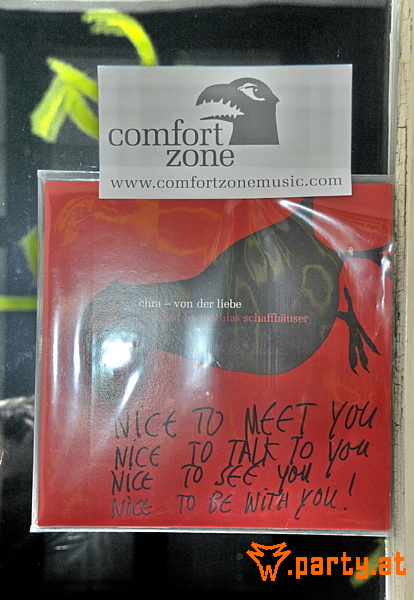 comfort
zone
www.comfortzonemusic.com
chra – von der liebe
mathias schaffhäuser
NICE TO MEET YOU
NICE TO TALK TO YOU
NICE TO SEE YOU
NICE TO BE WITH YOU!
w.party.at